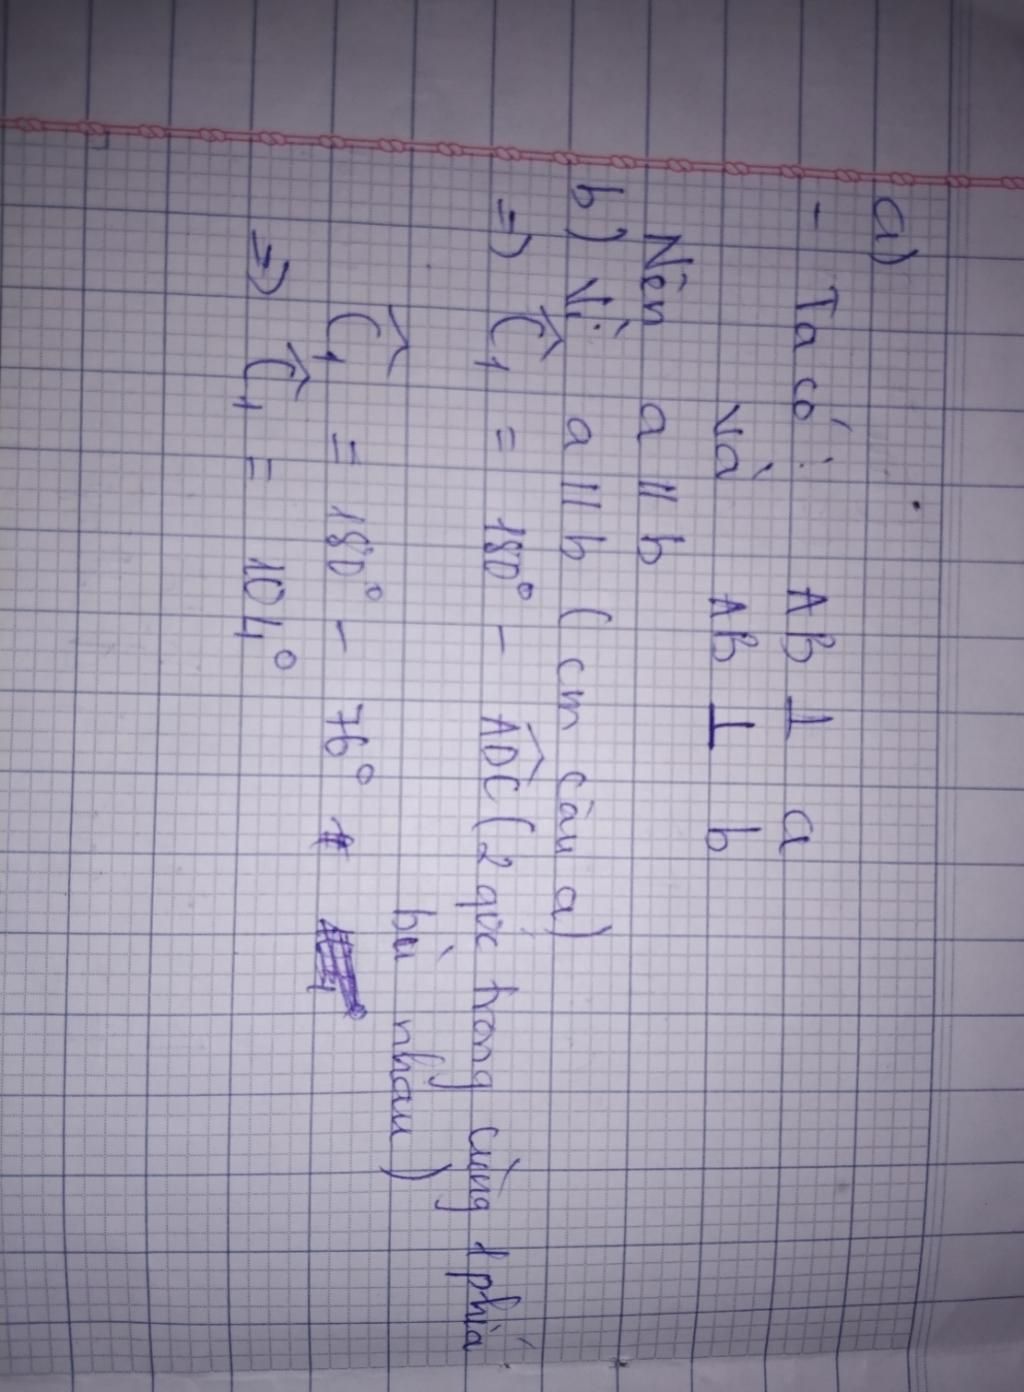 a)
- Ta có: AB ⊥ a
và AB ⊥ b
Nên a // b
b) Vì a // b (cm câu a)
=> Ĉ₁ = 180° - ADC^ (2 góc trong cùng 1 phía
bù nhau)
Ĉ₁ = 180° - 76°
=> Ĉ₁ = 104°